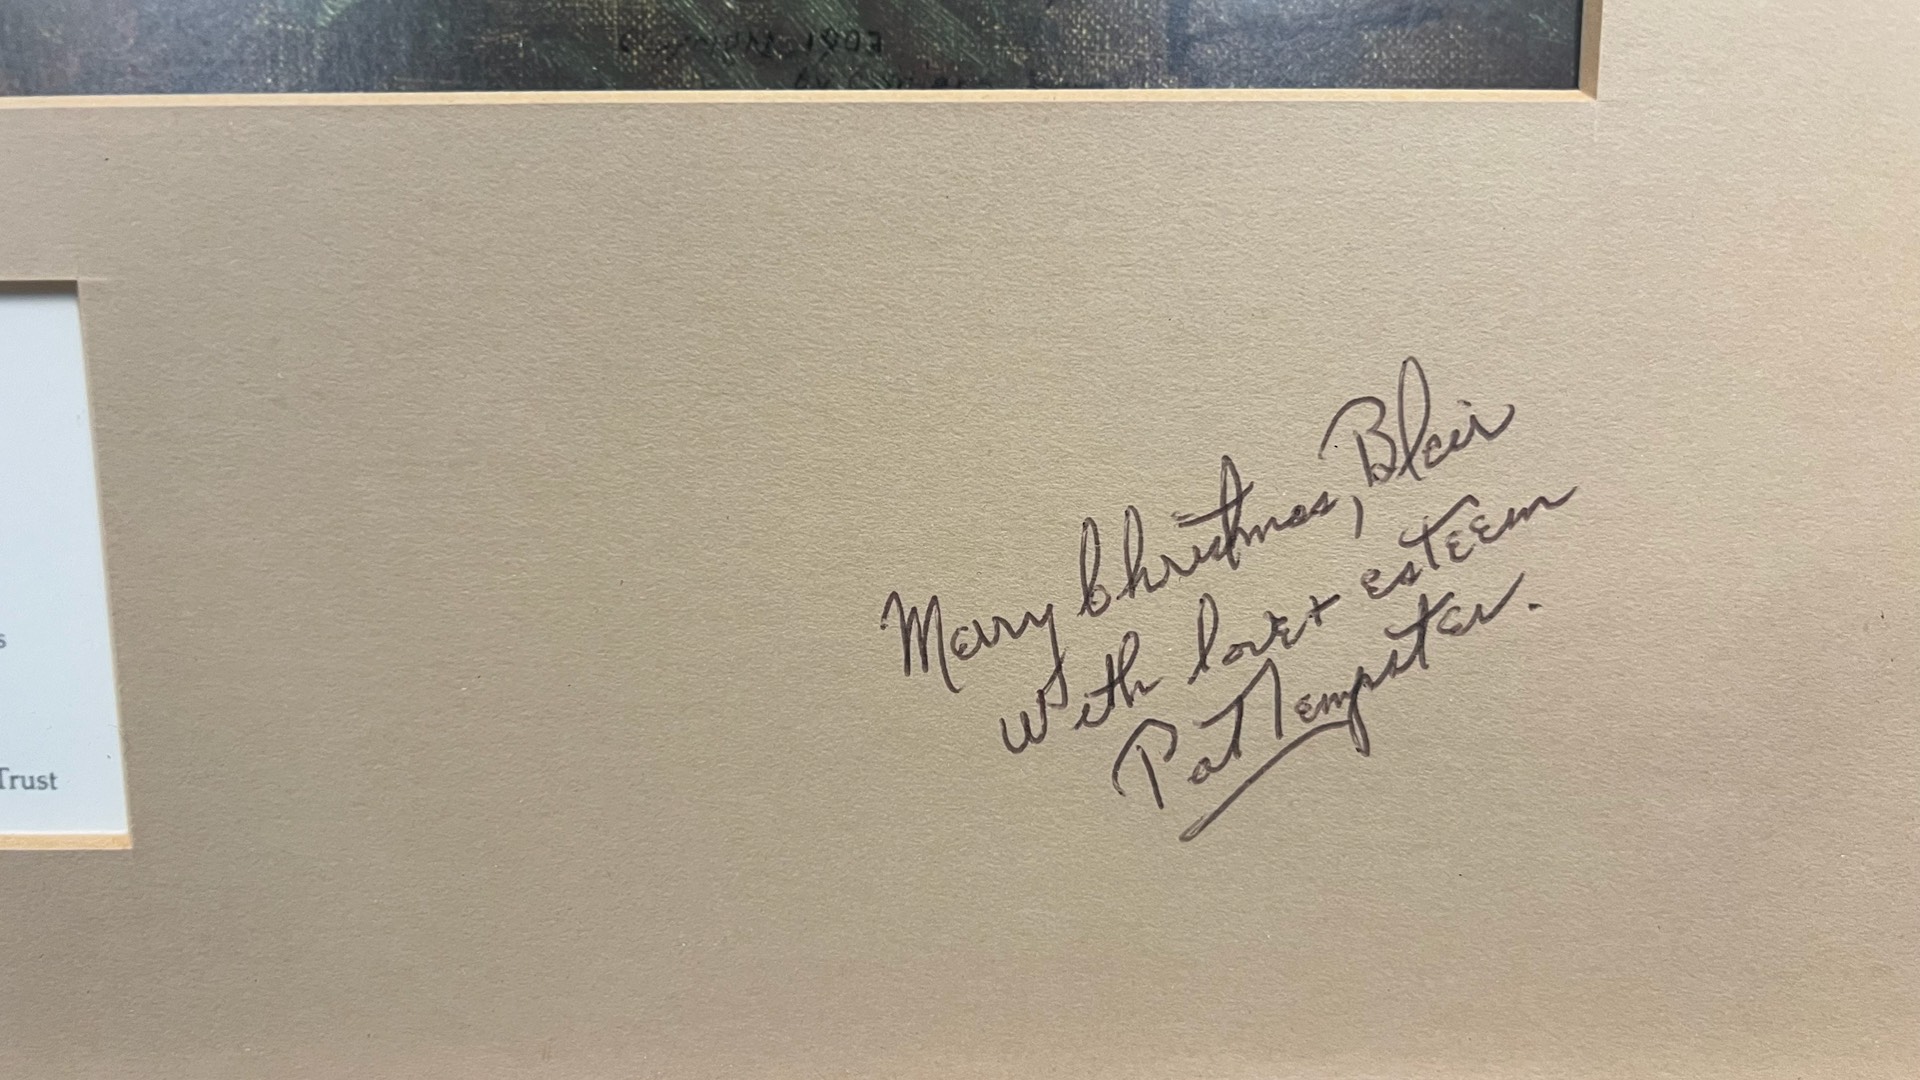 1903
s
Trust
Merry Christmas, Blair
with love + esteem
Pat Tempster.